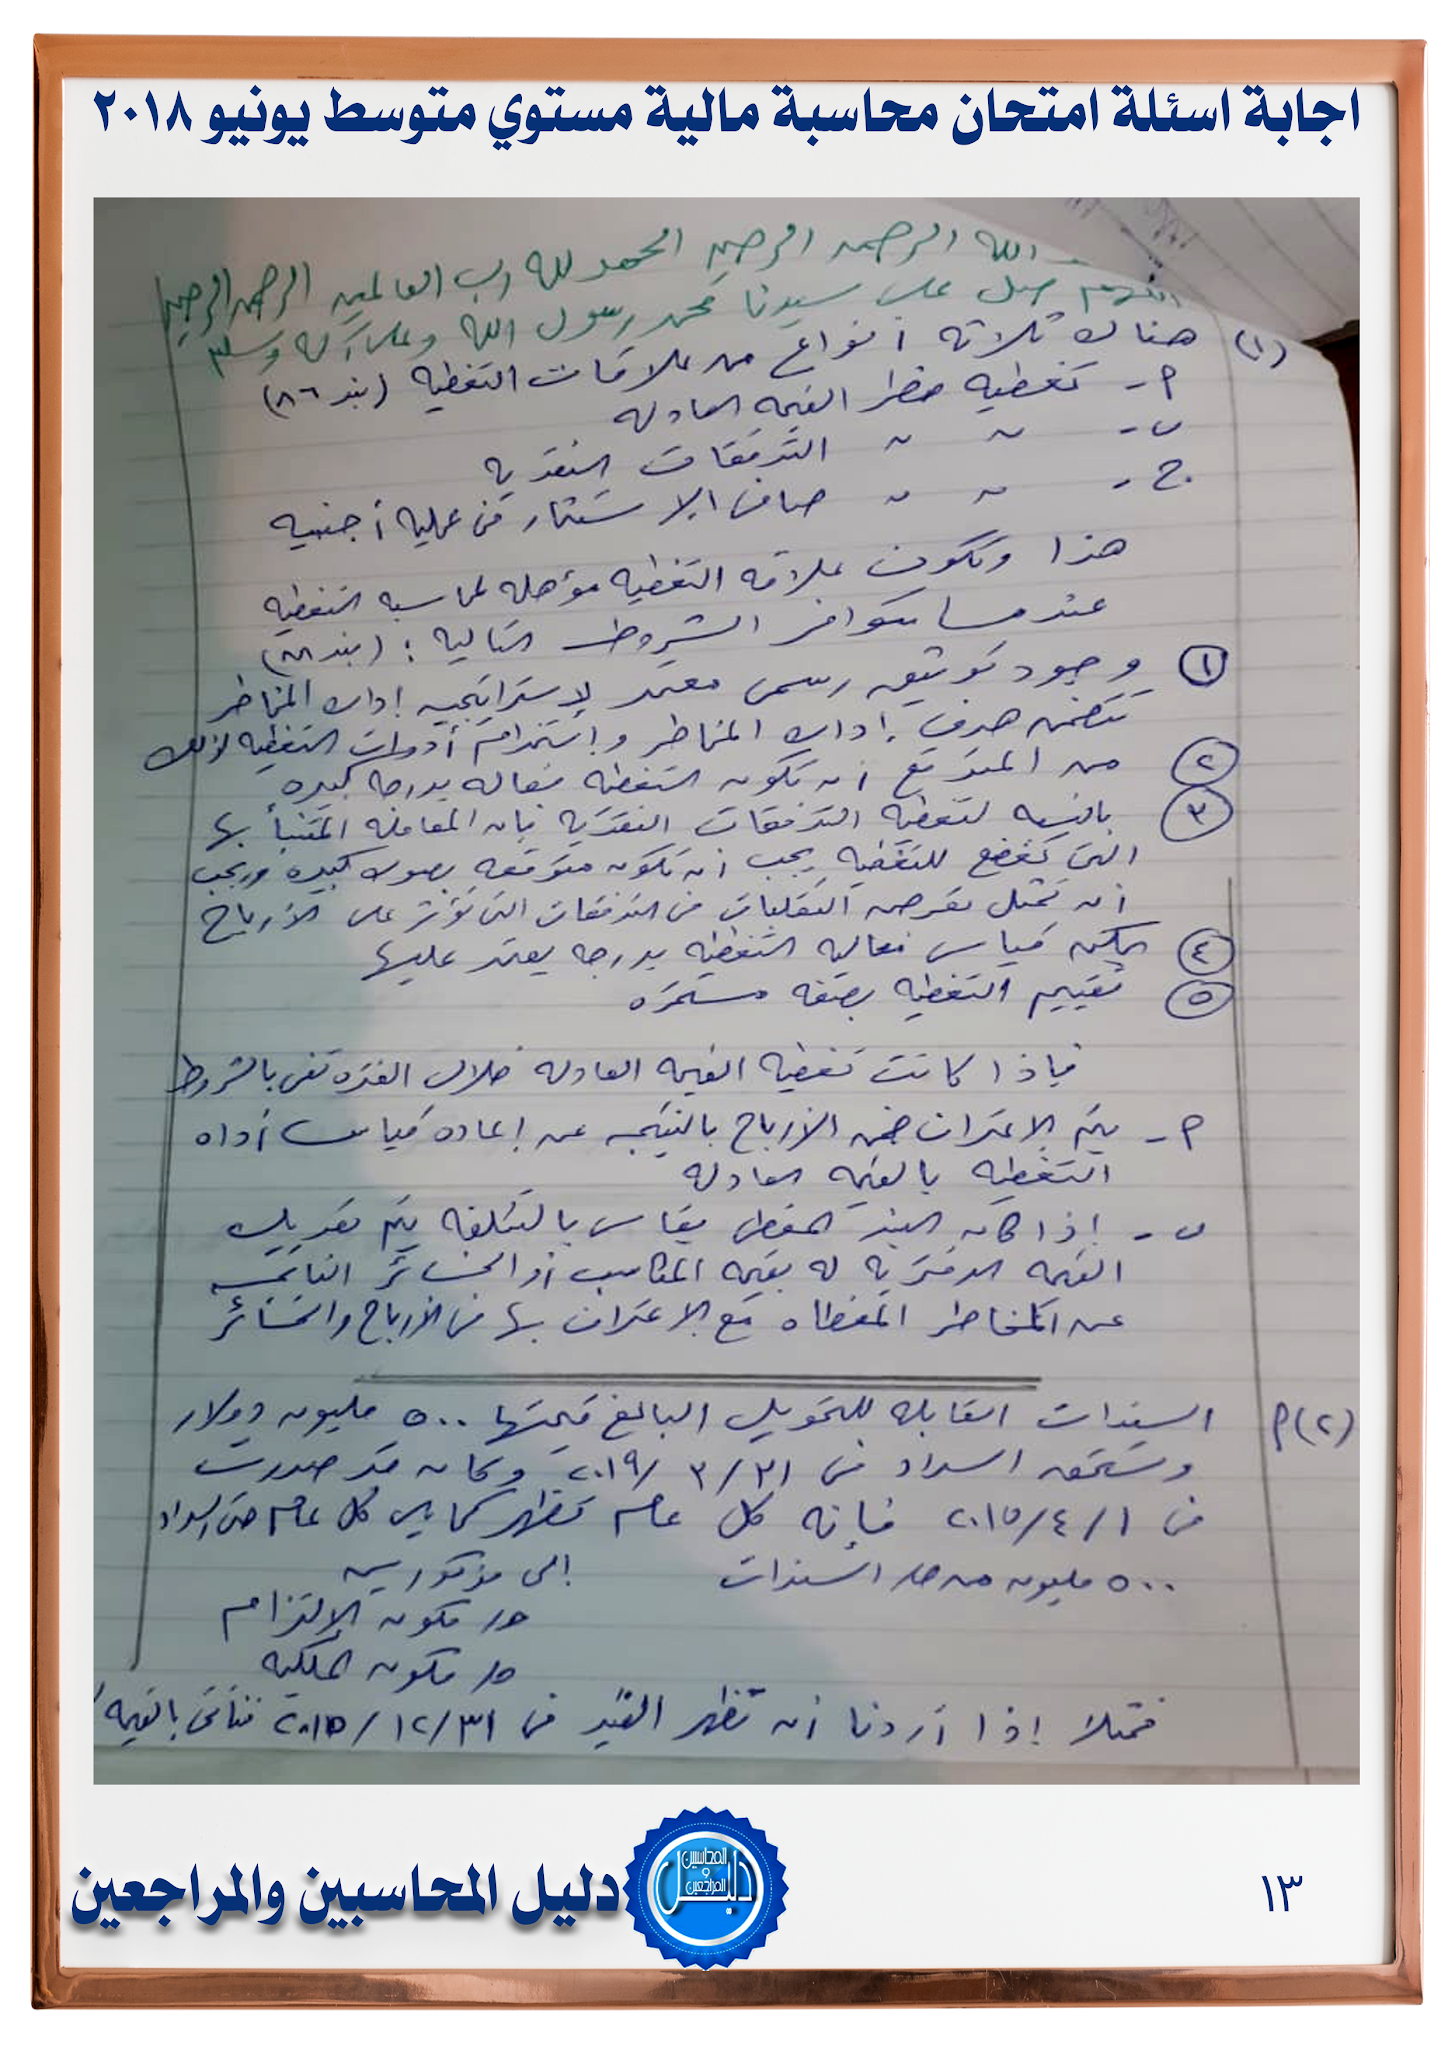 اجابة اسئلة امتحان محاسبة مالية مستوي متوسط يونيو ٢٠١٨
الله الرحمن الرحيم الحمد لله رب العالمين الرحمن الرحيم
اللهم صل على سيدنا محمد رسول الله وعلى آله وسلم
(١) هناك ثلاثة أنواع من علاقات التغطية (بند ٨٦)
م - تغطيه خطر القيمه العادله
ب - 〃 〃 التدفقات النقديه
ج - 〃 〃 صافى الاستثمار فى عمليه أجنبيه
هذا وتكون علاقه التغطيه مؤهله لمحاسبه التغطيه
عندما تتوافر الشروط التاليه : (بند ٨٨)
١ وجود توثيق رسمى معتمد لاستراتيجيه إداره المخاطر
تتضمن هدف إداره المخاطر وإستخدام أدوات التغطيه لذلك
٢ من المتوقع أن تكون التغطيه فعاله بدرجه كبيره
٣ بالنسبه لتغطيه التدفقات النقديه فإن المعامله المتنبأ بها
التى تخضع للتغطيه يجب أن تكون متوقعه بصوره كبيره ويجب
أن تمثل تعرض التقلبات فى التدفقات التى تؤثر على الأرباح
٤ يمكن قياس فعاليه التغطيه بدرجه يعتمد عليها
٥ تقييم التغطيه بصفه مستمره
فإذا كانت تغطيه القيمه العادله خلال الفتره تفى بالشروط
م - يتم الاعتراف ضمن الأرباح بالنتيجه عن إعاده قياس أداه
التغطيه بالقيمه العادله
ب - إذا كان البند المغطى يقاس بالتكلفه يتم تعديل
القيمه الدفتريه له بقيمه المكاسب أو الخسائر الناتجه
عن المخاطر المغطاه مع الاعتراف بها فى الأرباح والخسائر
(٢) م السندات القابله للتحويل البالغ قيمتها ٥٠٠ مليون دولار
وتستحق السداد فى ٣١/٣/٢٠١٩ وكان قد صدرت
فى ١/٤/٢٠١٥ فإنه كل عام تظهر كما يلى كل عام حتى السداد
٥٠٠ مليون من حـ/ السندات
إلى مذكورين
حـ/ مكون الإلتزام
حـ/ مكون الملكيه
فمثلا إذا أردنا أن تظهر القيد فى ٣١/١٢/٢٠١٥ فنأتى بالقيمه
دليل المحاسبين والمراجعين
دليل المحاسبين و المراجعين
١٣